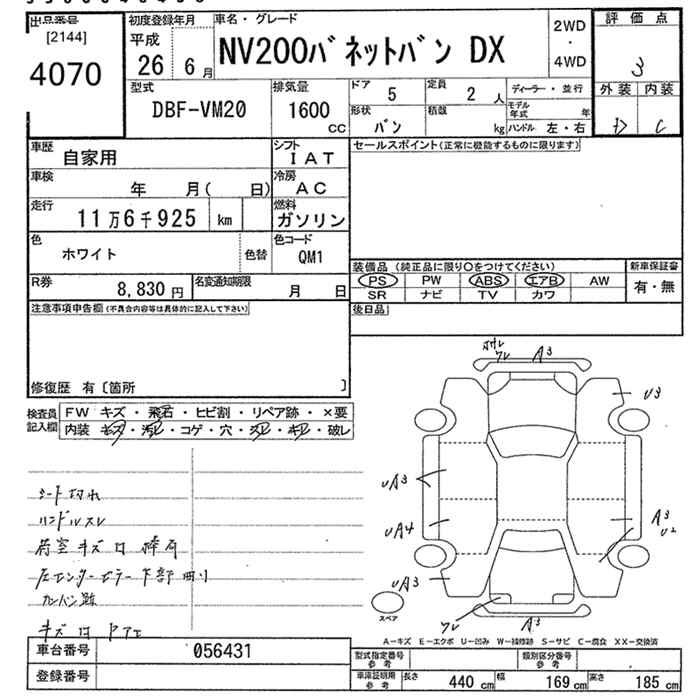 出品番号
[2144]
4070
初度登録年月
平成
26 6月
車名・グレード
NV200バネットバン DX
2WD
・
4WD
評価点
3
外装 内装
D C
型式
DBF-VM20
排気量
1600
CC
ドア
5
定員
2 人
ディーラー・並行
形状
バン
積載
kg
モデル年式 年
ハンドル 左・右
車歴
自家用
シフト
IAT
車検
年 月( 日)
冷房
AC
走行
11万6千925 km
燃料
ガソリン
色
ホワイト
色替
色コード
QM1
R券
8,830 円
名変通知期限
月 日
セールスポイント(正常に機能するものに限ります)
装備品 (純正品に限り○をつけてください)
新車保証書
PS PW ABS エアB AW
SR ナビ TV カワ
有・無
後日品
注意事項申告欄(不具合内容等は具体的に記入して下さい)
修復歴 有〔箇所 〕
検査員記入欄
FW キズ・飛石・ヒビ割・リペア跡・×要
内装 キズ・汚レ・コゲ・穴・スレ・キレ・破レ
シート切れ
ハンドルスレ
荷室キズ
下部曲り
カンバン跡
A3
U3
UA3
A3
U2
UA4
UA3
A3
スペア
A-キズ E-エクボ U-凹み W-補修跡 S-サビ C-腐食 XX-交換済
車台番号
056431
登録番号
型式指定番号
参考
類別区分番号
参考
車庫証明用
参考
長さ 440 cm 幅 169 cm 高さ 185 cm